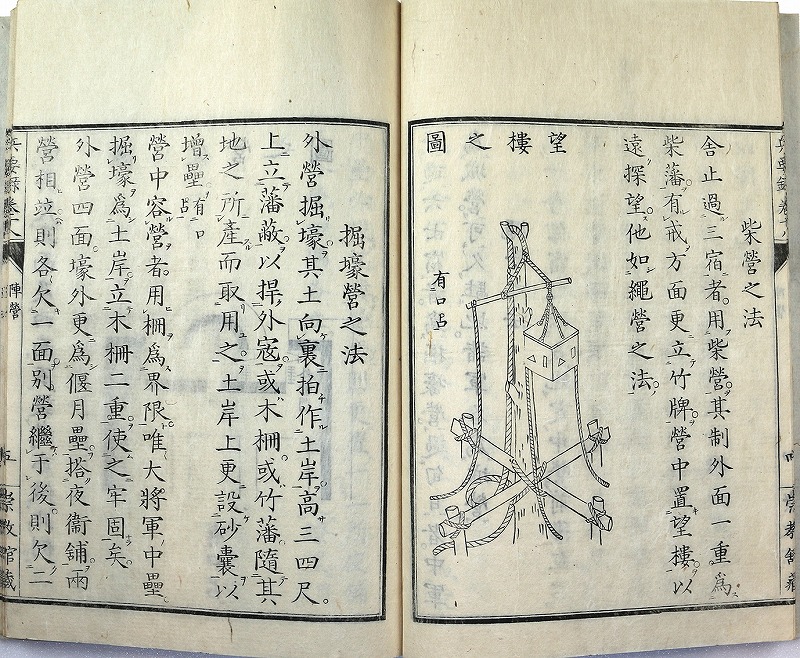 柴營之法
舍止過三宿者用柴營其制外面一重爲
柴藩有戒方面更立竹牌營中置望樓以
遠探望他如繩營之法
望樓之圖
有口占
掘壕營之法
外營掘壕其土向裏拍作土岸高三四尺。
上立藩蔽以捍外寇或木柵或竹藩隨其
地之所產而取用之土岸上更設砂囊以
增壘有口占
營中容營者用柵爲界限唯大將軍中壘
掘壕爲土岸立木柵二重使之牢固矣
外營四面壕外更爲偃月壘搭夜衞舖兩
營相竝則各欠一面別營繼于後則欠二
陣營
崇教館藏